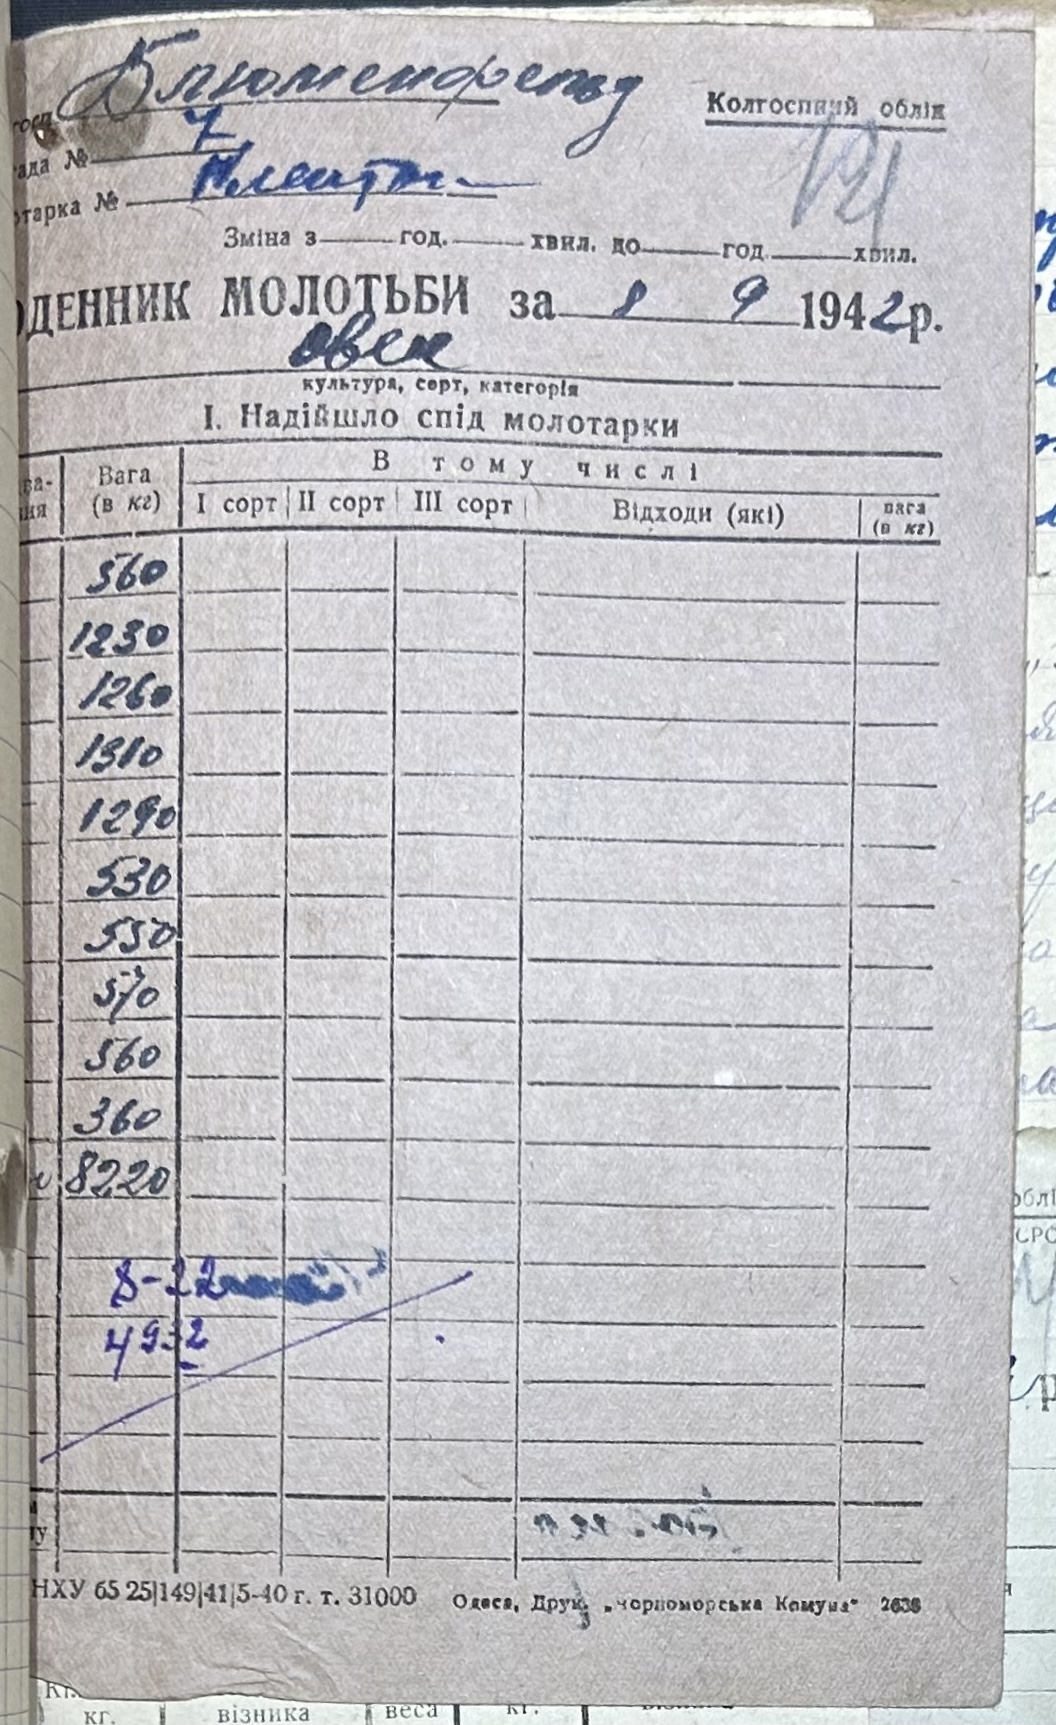 Блюменфельд
Колгоспний облік
госп
ада № 7
121
отарка №
Зміна з год. хвил. до год. хвил.
ОДЕННИК МОЛОТЬБИ за 8 9 1942 р.
овес
культура, сорт, категорія
I. Надійшло спід молотарки
ва-
ння
Вага
(в кг)
В тому числі
I сорт II сорт III сорт Відходи (які) вага
(в кг)
560
1230
1260
1310
1290
530
550
570
560
360
8220
8-22
4932
НХУ 65 25|149|41|5-40 г. т. 31000 Одеса, Друк. „Чорноморська Комуна" 2636
кг. візника веса кг.